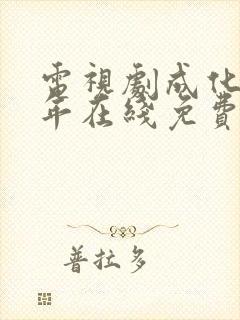 電視劇成化
年在綫免費
普拉多